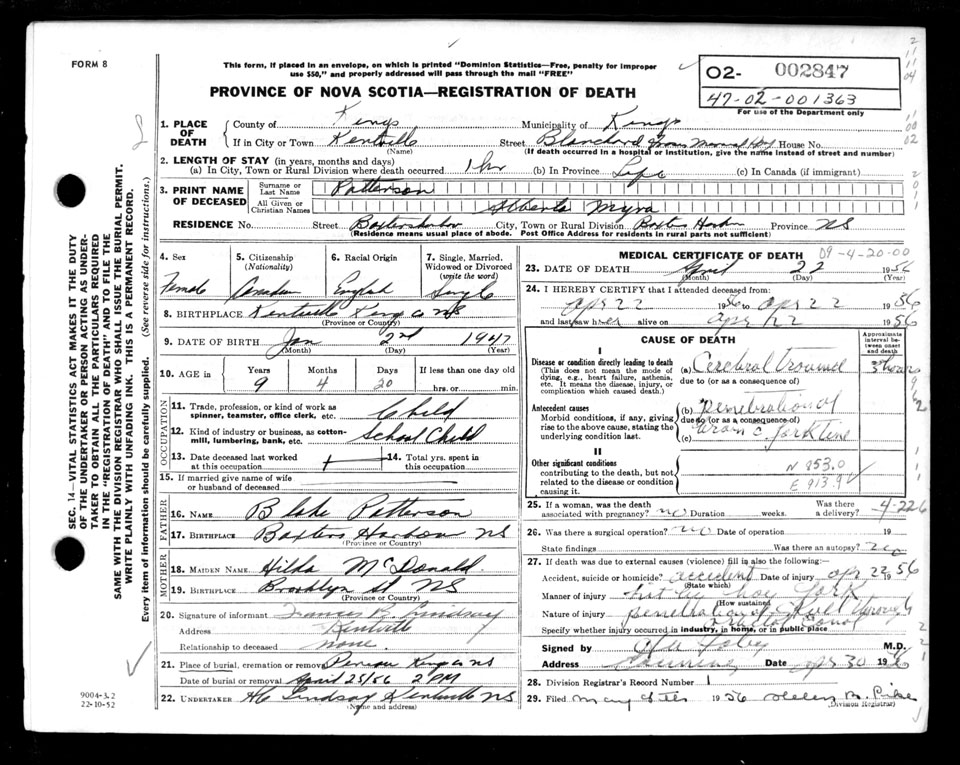 FORM 8
This form, if placed in an envelope, on which is printed "Dominion Statistics—Free, penalty for improper
use $50," and properly addressed will pass through the mail "FREE"
02- 002847
47-02-001363
For use of the Department only
PROVINCE OF NOVA SCOTIA—REGISTRATION OF DEATH
1. PLACE OF DEATH { County of Kings Municipality of Kings
If in City or Town Kentville Street Blanchard House No.
(Name) (If death occurred in a hospital or institution, give the name instead of street and number)
2. LENGTH OF STAY (in years, months and days)
(a) In City, Town or Rural Division where death occurred 1 hr (b) In Province Life (c) In Canada (if immigrant)
3. PRINT NAME OF DECEASED { Surname or Last Name Patterson
All Given or Christian Names Alberta Myra
RESIDENCE No. Street Baxters Harbor City, Town or Rural Division Baxters Harbor Province NS
(Residence means usual place of abode. Post Office Address for residents in rural parts not sufficient)
4. Sex 5. Citizenship 6. Racial Origin 7. Single, Married,
(Nationality) Widowed or Divorced
(write the word)
Female Canadian English Single
8. BIRTHPLACE Kentville Kings Co NS
(Province or Country)
9. DATE OF BIRTH Jan 2nd 1947
(Month) (Day) (Year)
10. AGE in Years Months Days If less than one day old
9 4 20 hrs. or min.
OCCUPATION
11. Trade, profession, or kind of work as spinner, teamster, office clerk, etc. Child
12. Kind of industry or business, as cotton-mill, lumbering, bank, etc. School Child
13. Date deceased last worked at this occupation 14. Total yrs. spent in this occupation
15. If married give name of wife or husband of deceased
FATHER
16. NAME Blake Patterson
17. BIRTHPLACE Baxters Harbour NS
(Province or Country)
MOTHER
18. MAIDEN NAME Hilda McDonald
19. BIRTHPLACE Brooklyn St NS
(Province or Country)
20. Signature of informant Frances B. Lindsay
Address Kentville
Relationship to deceased none
21. Place of burial, cremation or removal Pereau Kings Co NS
Date of burial or removal April 25/56 2 PM
22. UNDERTAKER Lindsay Kentville NS
(Name and address)
MEDICAL CERTIFICATE OF DEATH 09-4-20-00
23. DATE OF DEATH April 22 1956
(Month) (Day) (Year)
24. I HEREBY CERTIFY that I attended deceased from:
apr 22 1956 to apr 22 1956
and last saw her alive on apr 22 1956
CAUSE OF DEATH
Approximate interval between onset and death
I
Disease or condition directly leading to death
(This does not mean the mode of dying, e.g., heart failure, asthenia, etc. It means the disease, injury, or complication which caused death.)
(a) Cerebral Trauma 3 hours
due to (or as a consequence of)
Antecedent causes
Morbid conditions, if any, giving rise to the above cause, stating the underlying condition last.
(b) penetration of
due to (or as a consequence of)
(c) brain c fork tine
II
Other significant conditions
contributing to the death, but not related to the disease or condition causing it.
N 853.0
E 913.9
25. If a woman, was the death associated with pregnancy? no Duration weeks. Was there a delivery?
4-226
26. Was there a surgical operation? no Date of operation 19
State findings Was there an autopsy? no
27. If death was due to external causes (violence) fill in also the following:
Accident, suicide or homicide? accident Date of injury apr 22 1956
(State which)
Manner of injury hit by hay fork
(How sustained)
Nature of injury penetration of skull through
orbital canal
Specify whether injury occurred in industry, in home, or in public place
Signed by M.D.
Address Canning Date apr 30 1956
28. Division Registrar's Record Number 1
29. Filed May 1956 Helen B.
(Division Registrar)
SEC. 14—VITAL STATISTICS ACT MAKES IT THE DUTY
OF THE UNDERTAKER OR PERSON ACTING AS UNDER-
TAKER TO OBTAIN ALL THE PARTICULARS REQUIRED
IN THE "REGISTRATION OF DEATH" AND TO FILE THE
SAME WITH THE DIVISION REGISTRAR WHO SHALL ISSUE THE BURIAL PERMIT.
WRITE PLAINLY WITH UNFADING INK. THIS IS A PERMANENT RECORD.
Every item of information should be carefully supplied. (See reverse side for instructions.)
9004-3.2
22-10-52